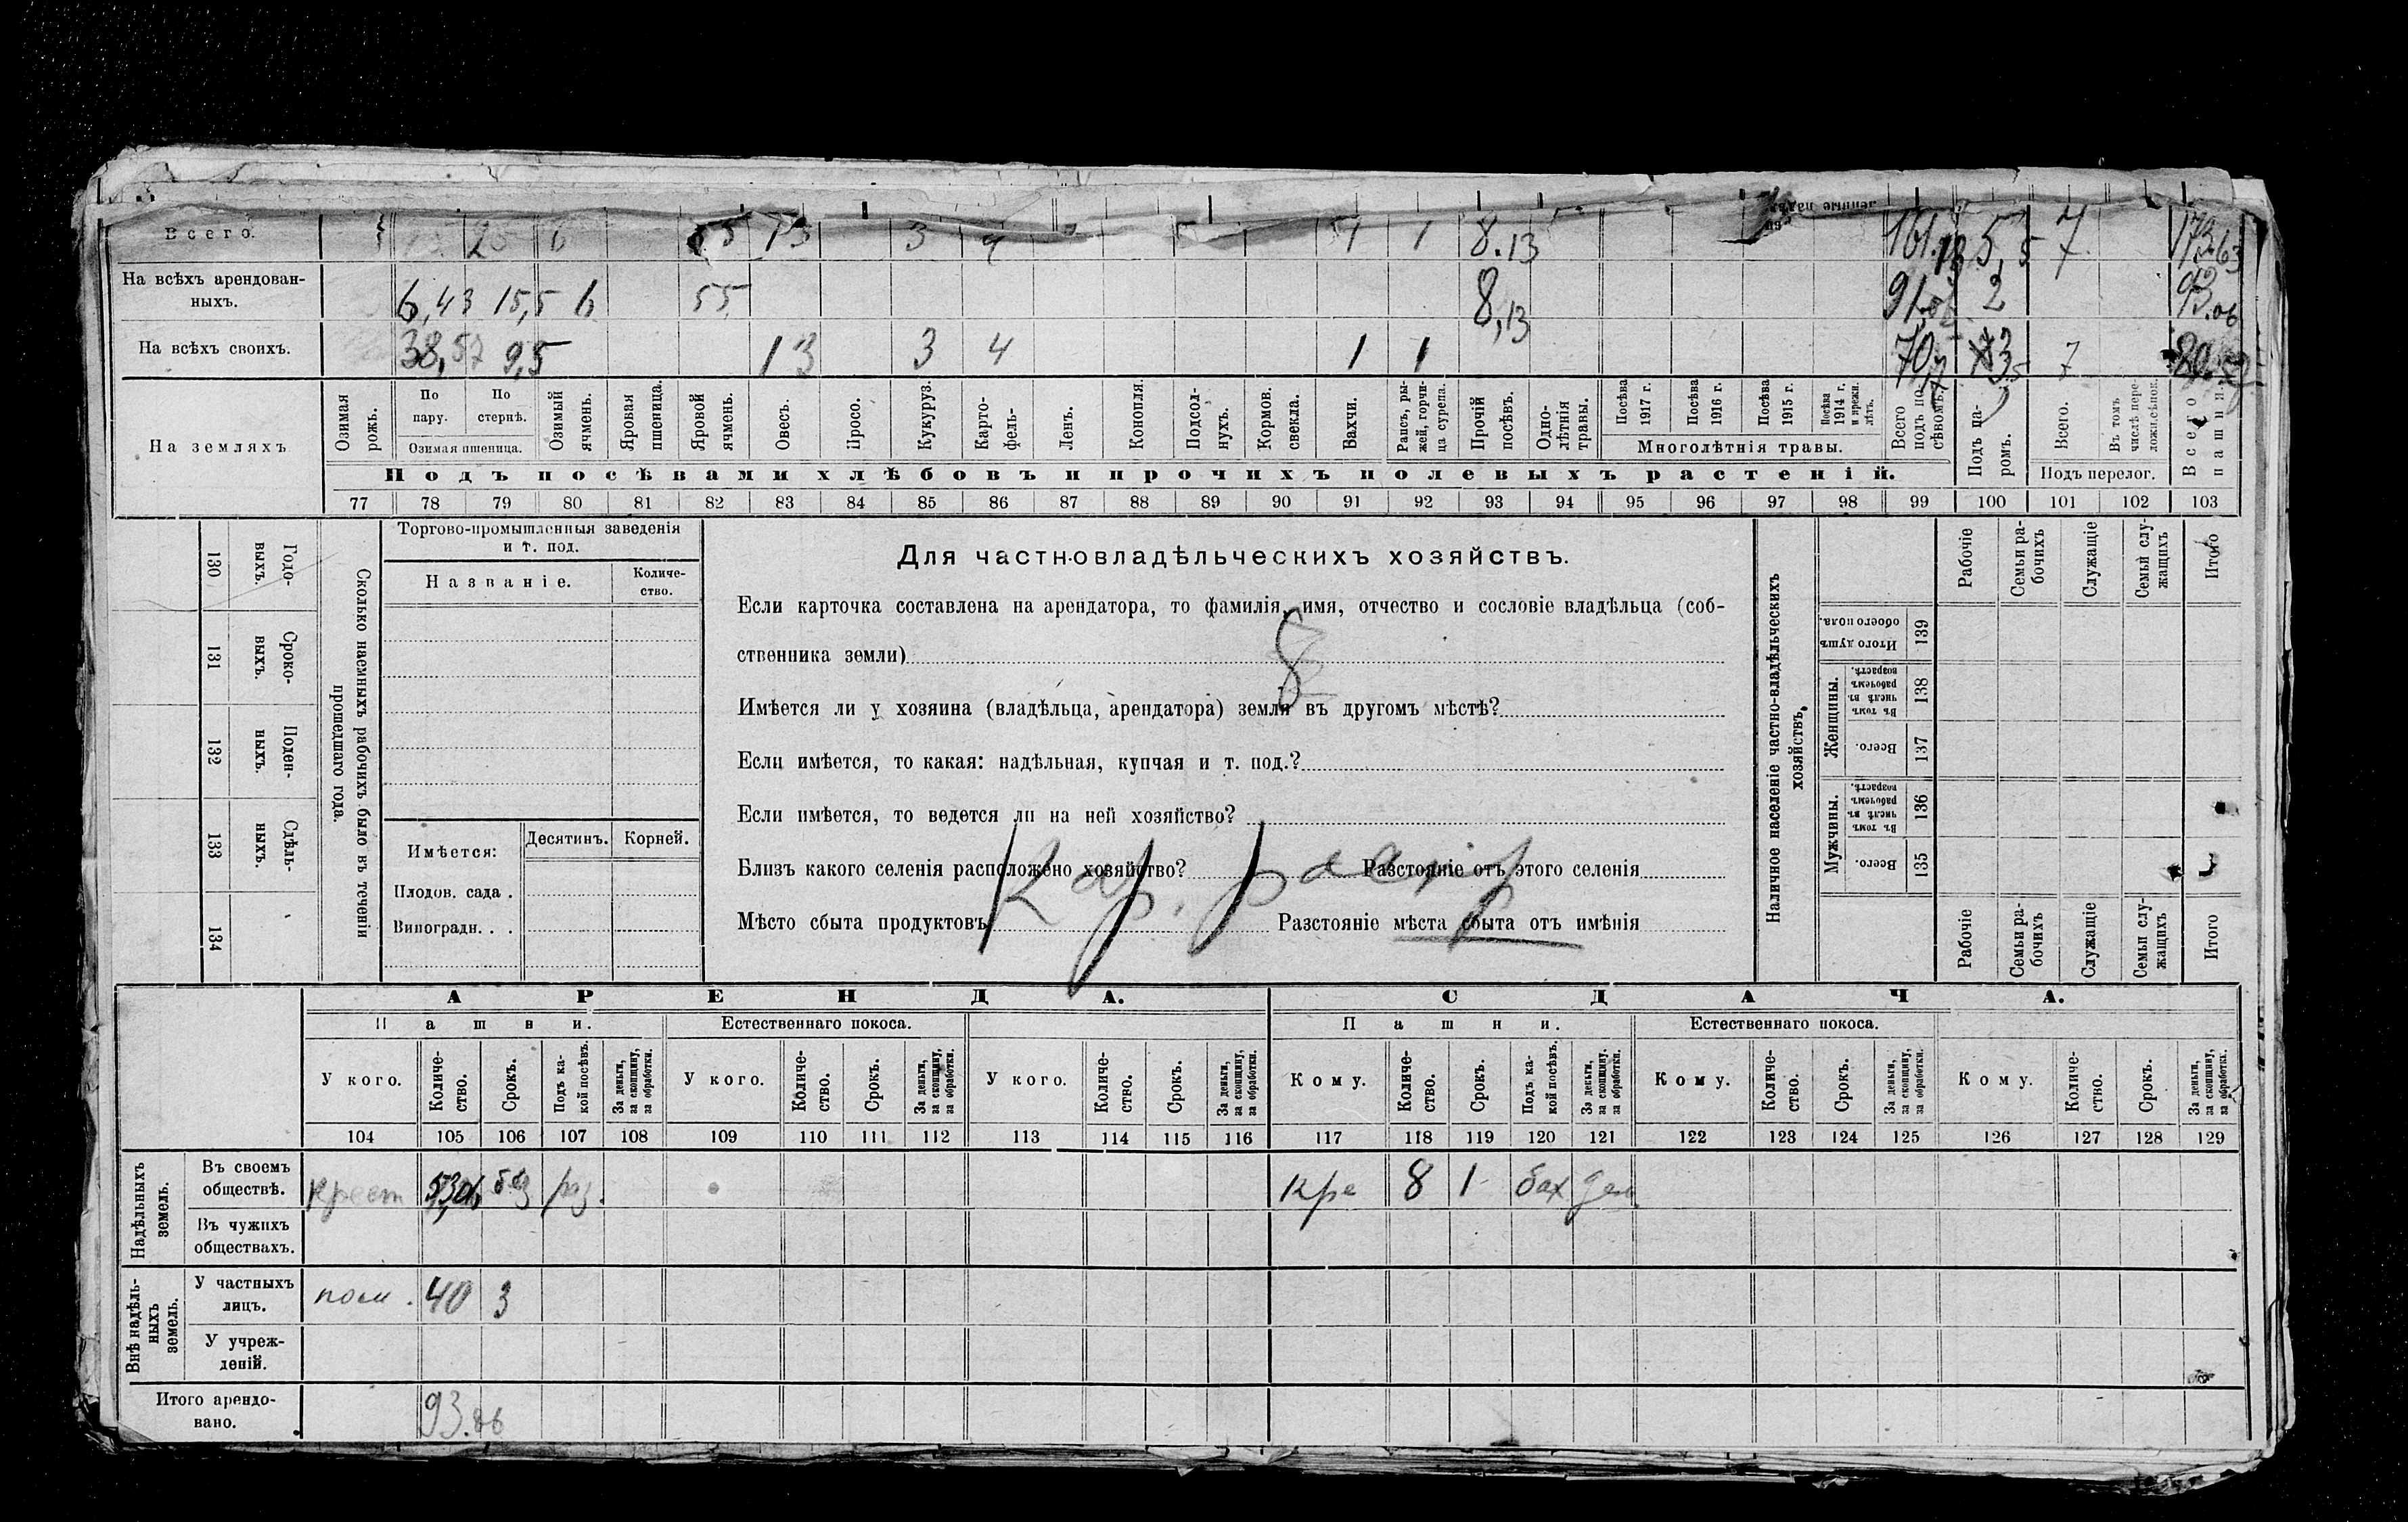 Всего. 25 6 55 13 3 4 1 1 8.13 161.13 5,5 7 173.63
На всѣхъ арендован-
ныхъ. 6,43 15,5 6 55 8,13 91,06 2 93.06
На всѣхъ своихъ. 38,57 9,5 13 3 4 1 1 70,07 3,5 7
На земляхъ
Озимая рожь.
По пару.
По стернѣ.
Озимая пшеница.
Озимый ячмень.
Яровая пшеница.
Яровой ячмень.
Овесъ.
Просо.
Кукуруз.
Карто-
фель-
Ленъ.
Конопля.
Подсол-
нухъ.
Кормов. свекла.
Вахчи.
Рапсъ, ры-
жей, горчи-
ца сурепа.
Прочій посѣвъ.
Одно-
лѣтнія травы.
Посѣва 1917 г.
Посѣва 1916 г.
Посѣва 1915 г.
Посѣва 1914 г. и прежн. лѣтъ.
Многолѣтнія травы.
Всего подъ по-
сѣвомъ.
Подъ па-
ромъ.
Всего.
Въ томъ числѣ пере-
ложн. сѣнок.
Подъ перелог.
Всего пашни.
Подъ посѣвами хлѣбовъ и прочихъ полевыхъ растеній.
77 78 79 80 81 82 83 84 85 86 87 88 89 90 91 92 93 94 95 96 97 98 99 100 101 102 103
130 Годо-
выхъ.
131 Сроко-
выхъ.
132 Поден-
ныхъ.
133 Сдѣль-
ныхъ.
134
Сколько наемныхъ рабочихъ было въ теченіи
прошедшаго года.
Торгово-промышленныя заведенія
и т. под.
Названіе. Количе-
ство.
Имѣется: Десятинъ. Корней.
Плодов. сада .
Виноградн. . .
Для частновладѣльческихъ хозяйствъ.
Если карточка составлена на арендатора, то фамилія, имя, отчество и сословіе владѣльца (соб-
ственника земли)
8
Имѣется ли у хозяина (владѣльца, арендатора) земля въ другомъ мѣстѣ?
Если имѣется, то какая: надѣльная, купчая и т. под.?
Если имѣется, то ведется ли на ней хозяйство?
Близъ какого селенія расположено хозяйство? Разстояніе отъ этого селенія
Мѣсто сбыта продуктовъ Разстояніе мѣста сбыта отъ имѣнія
Наличное населеніе частно-владѣльческихъ
хозяйствъ.
Рабочіе
Семьи ра-
бочихъ
Служащіе
Семьи слу-
жащихъ
Итого
Итого душъ обоего пола. 139
Женщины.
Въ томъ числѣ въ рабочемъ возрастѣ. 138
Всего. 137
Мужчины.
Въ томъ числѣ въ рабочемъ возрастѣ. 136
Всего. 135
Рабочіе
Семьи ра-
бочихъ
Служащіе
Семьи слу-
жащихъ
Итого
АРЕНДА. СДАЧА.
Пашни. Естественнаго покоса. Пашни. Естественнаго покоса.
У кого. Количе-
ство. Срокъ. Подъ ка-
кой посѣвъ. За деньги, за скопщину, за обработки.
У кого. Количе-
ство. Срокъ. За деньги, за скопщину, за обработки.
У кого. Количе-
ство. Срокъ. За деньги, за скопщину, за обработки.
Кому. Количе-
ство. Срокъ. Подъ ка-
кой посѣвъ. За деньги, за скопщину, за обработки.
Кому. Количе-
ство. Срокъ. За деньги, за скопщину, за обработки.
Кому. Количе-
ство. Срокъ. За деньги, за скопщину, за обработки.
104 105 106 107 108 109 110 111 112 113 114 115 116 117 118 119 120 121 122 123 124 125 126 127 128 129
Надѣльныхъ земель.
Въ своемъ
обществѣ. крест 53,06 раз. Кре 8 1 бах ден
Въ чужихъ
обществахъ.
Внѣ надѣль-
ныхъ земель.
У частныхъ
лицъ. пом. 40 3
У учреж-
деній.
Итого арендо-
вано. 93.06